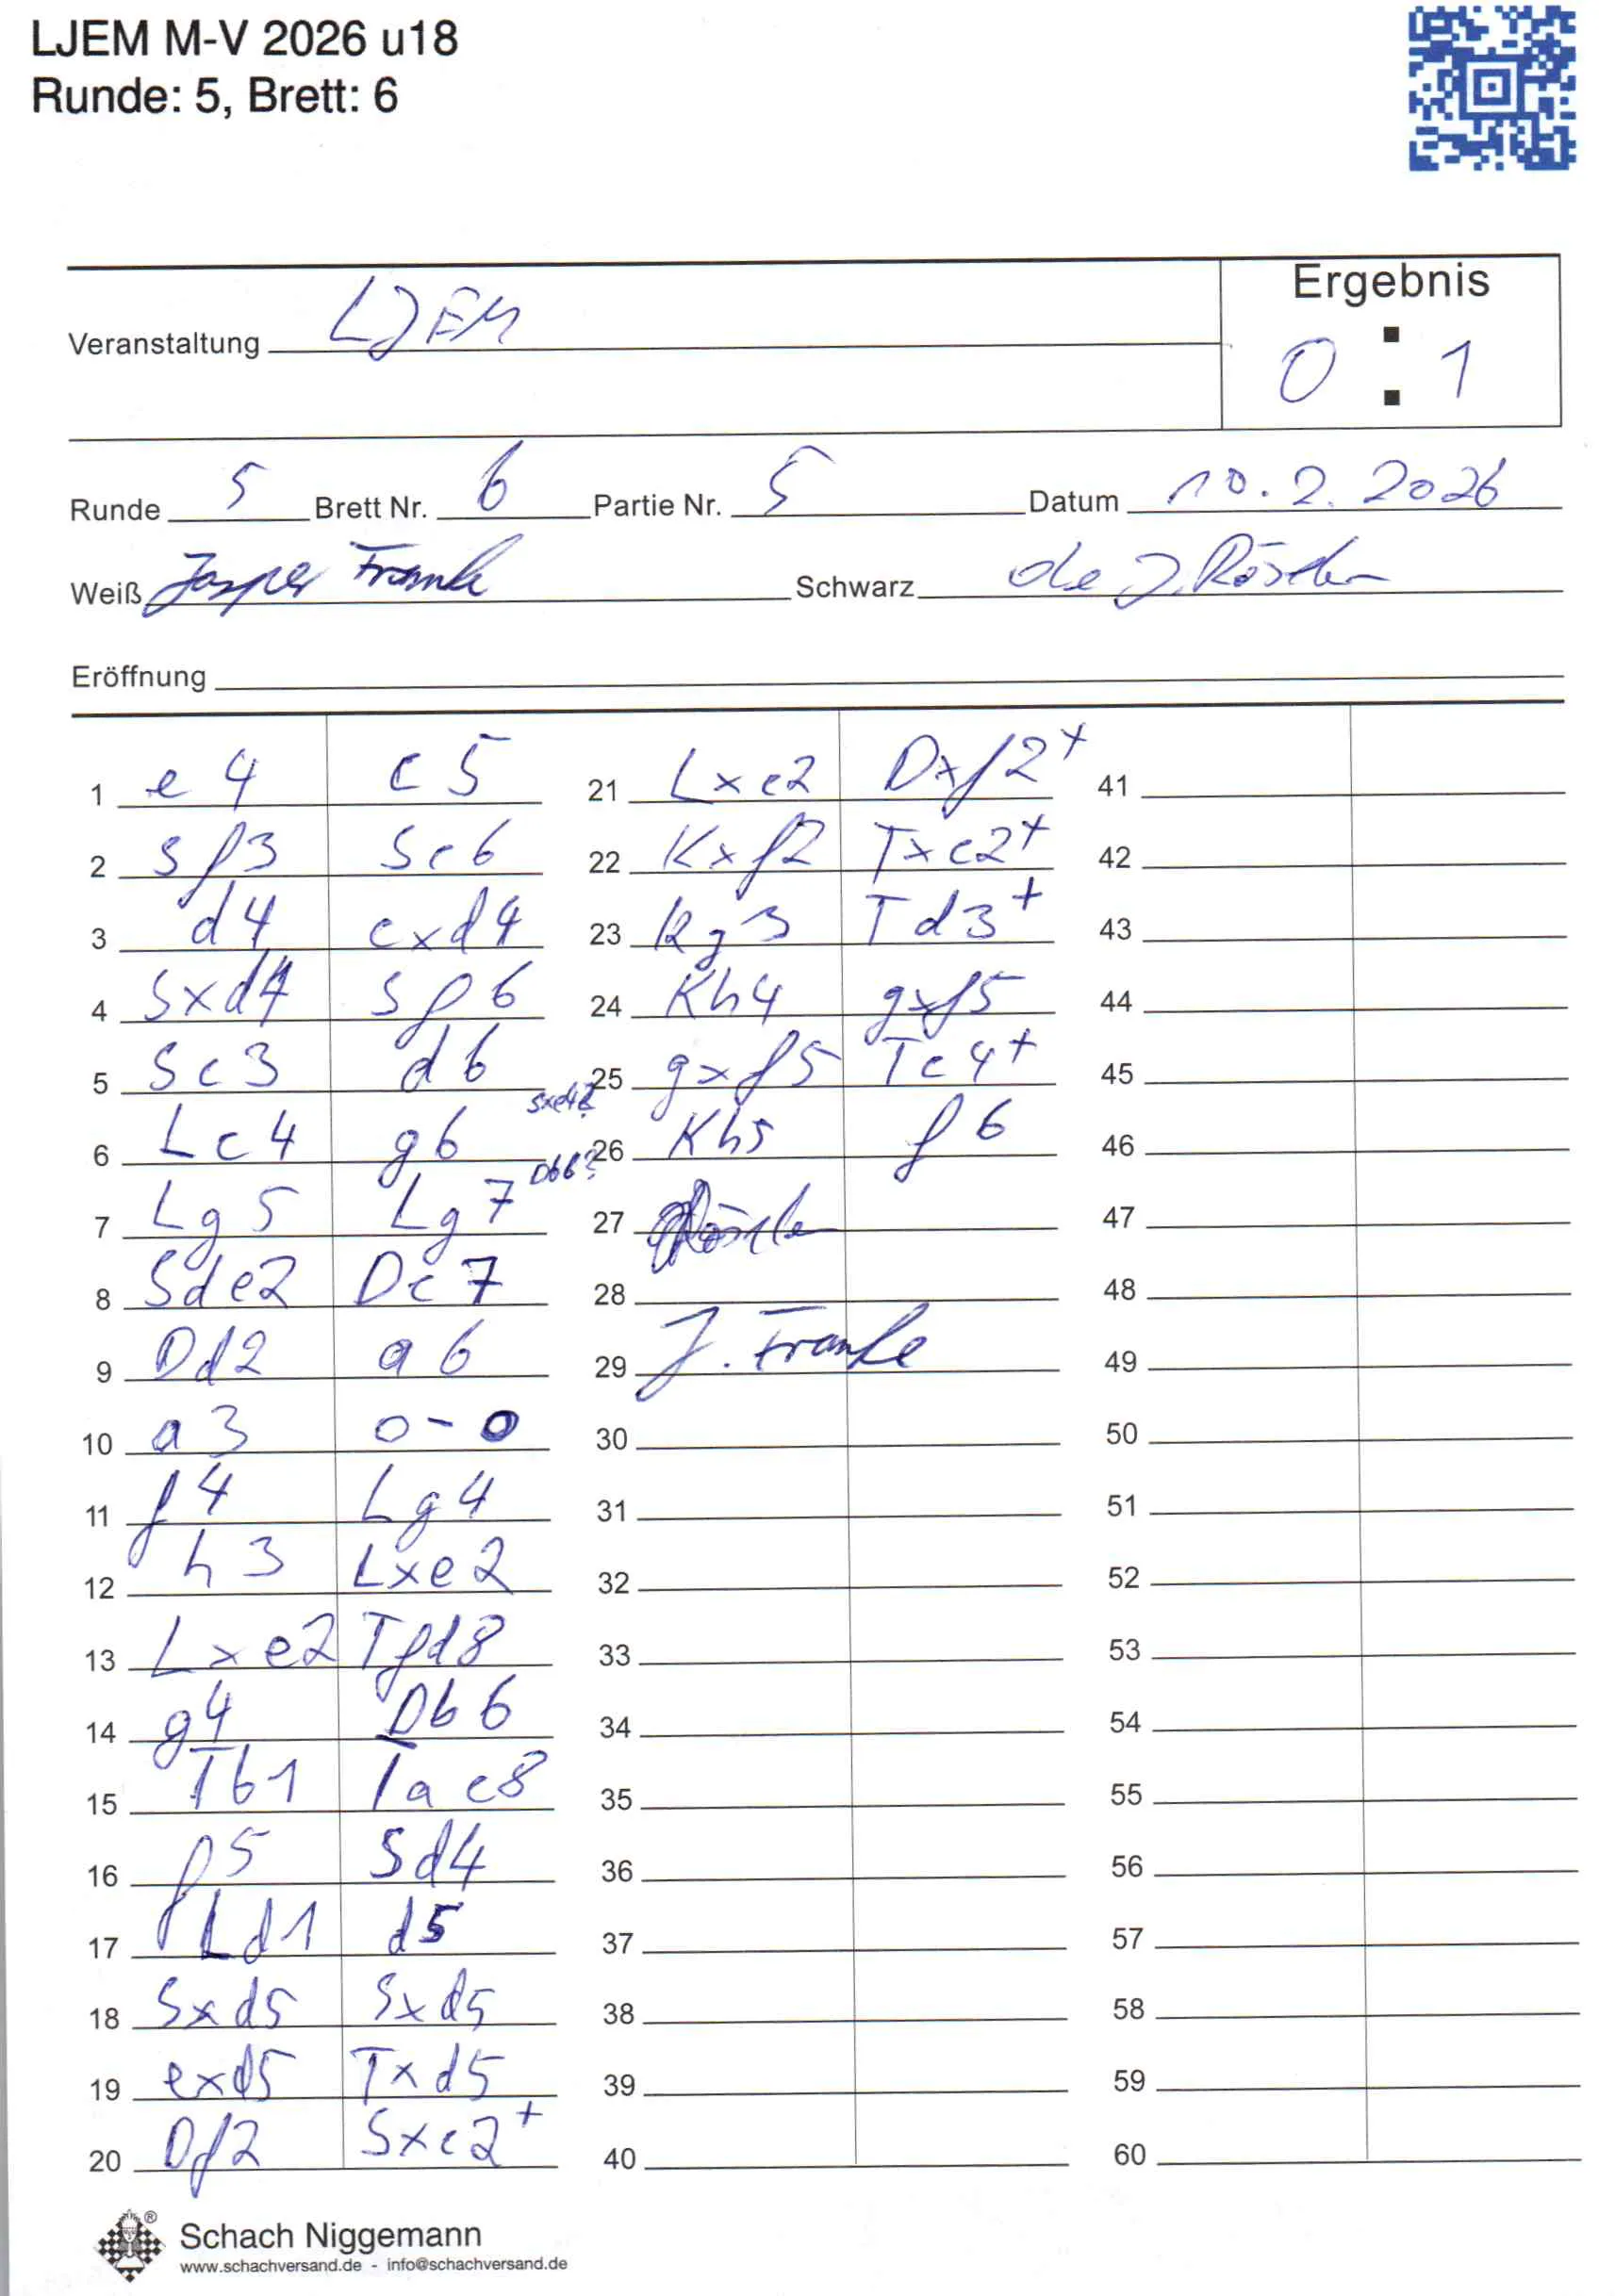 LJEM M-V 2026 u18
Runde: 5, Brett: 6
Ergebnis
Veranstaltung LJEM
0 : 1
Runde 5 Brett Nr. 6 Partie Nr. 5 Datum 10.2.2026
Weiß Jasper Franke Schwarz J. Röseler
Eröffnung
1 e4 c5
2 Sf3 Sc6
3 d4 cxd4
4 Sxd4 Sf6
5 Sc3 d6
6 Lc4 g6 Sxe4?
7 Lg5 Lg7 Db6?
8 Sde2 Dc7
9 Dd2 a6
10 a3 0-0
11 f4 Lg4
12 h3 Lxe2
13 Lxe2 Tfd8
14 g4 Db6
15 Tb1 Tac8
16 f5 Sd4
17 Ld1 d5
18 Sxd5 Sxd5
19 exd5 Txd5
20 Df2 Sxc2+
21 Lxc2 Dxf2+
22 Kxf2 Txc2+
23 Kg3 Td3+
24 Kh4 gxf5
25 gxf5 Tc4+
26 Kh5 f6
27
28
29 J. Franke
30
31
32
33
34
35
36
37
38
39
40
41
42
43
44
45
46
47
48
49
50
51
52
53
54
55
56
57
58
59
60
Schach Niggemann
www.schachversand.de - info@schachversand.de